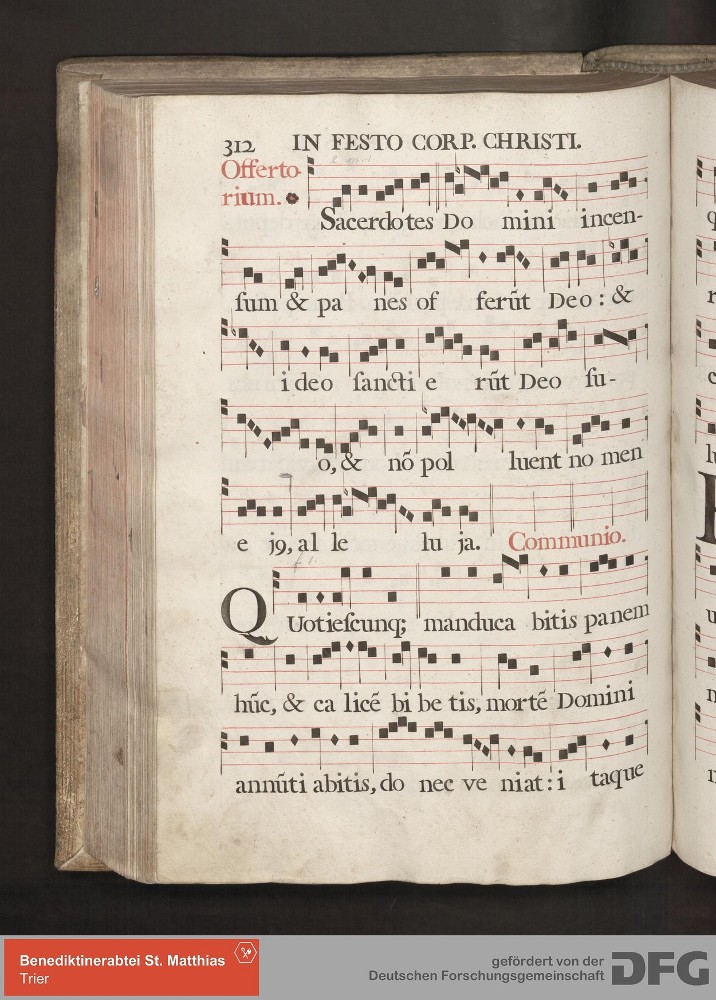 312 IN FESTO CORP. CHRISTI.
Offerto-
rium.
Sacerdotes Do mini incen-
ſum & pa nes of ferūt Deo : &
i deo ſancti e rūt Deo ſu-
o, & nō pol luent no men
e jꝯ, al le lu ja. Communio.
QUotieſcunq; manduca bitis panem
hūc, & ca licē bi be tis, mortē Domini
annūti abitis, do nec ve niat : i taque
Benediktinerabtei St. Matthias
Trier
gefördert von der
Deutschen Forschungsgemeinschaft
DFG